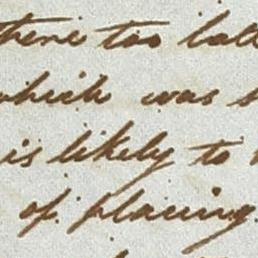 there too
which was
is likely to
of placing